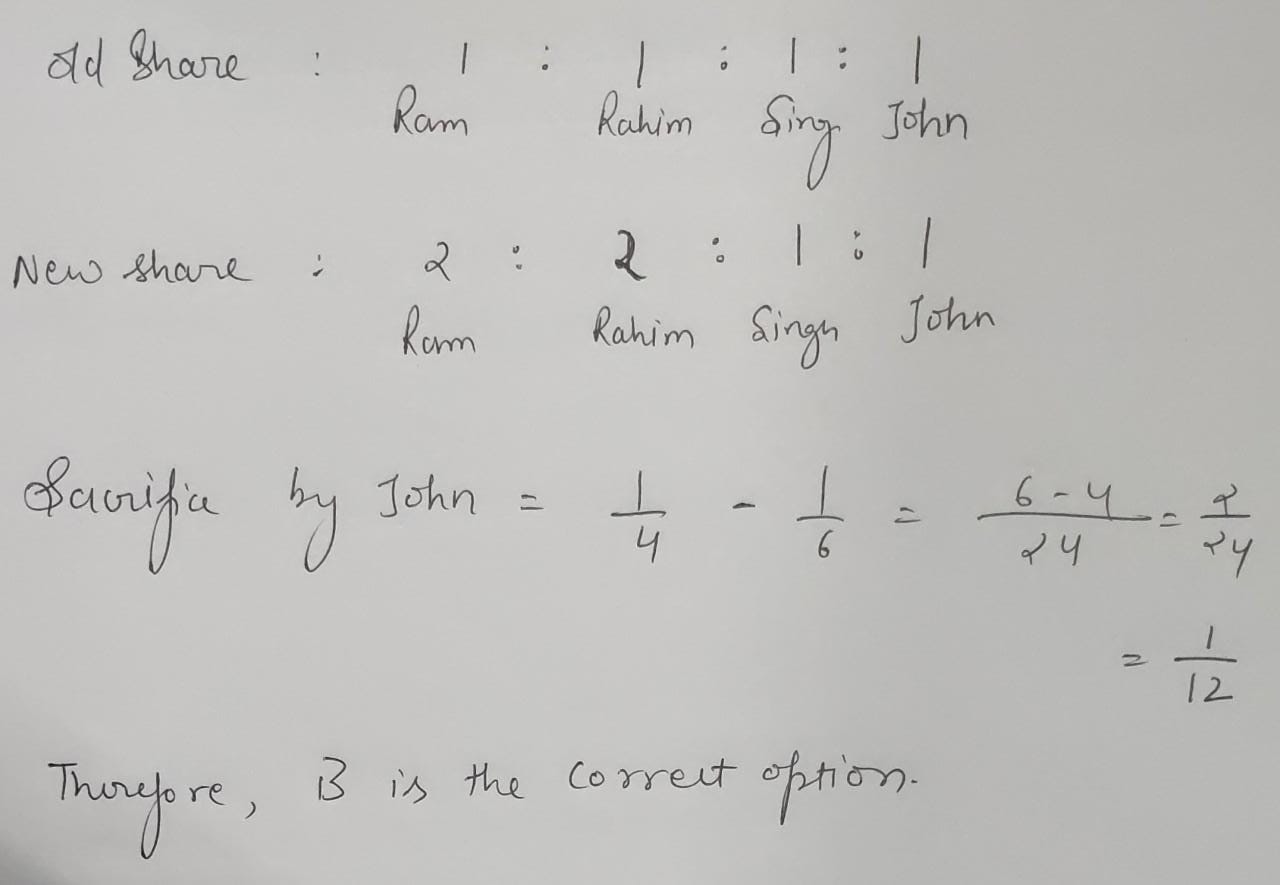 Old Share : 1 : 1 : 1 : 1
Ram Rahim Sing John
New share : 2 : 2 : 1 : 1
Ram Rahim Singh John
Sacrifice by John = 1/4 - 1/6 = 6-4/24 = 2/24
= 1/12
Therefore, B is the correct option.